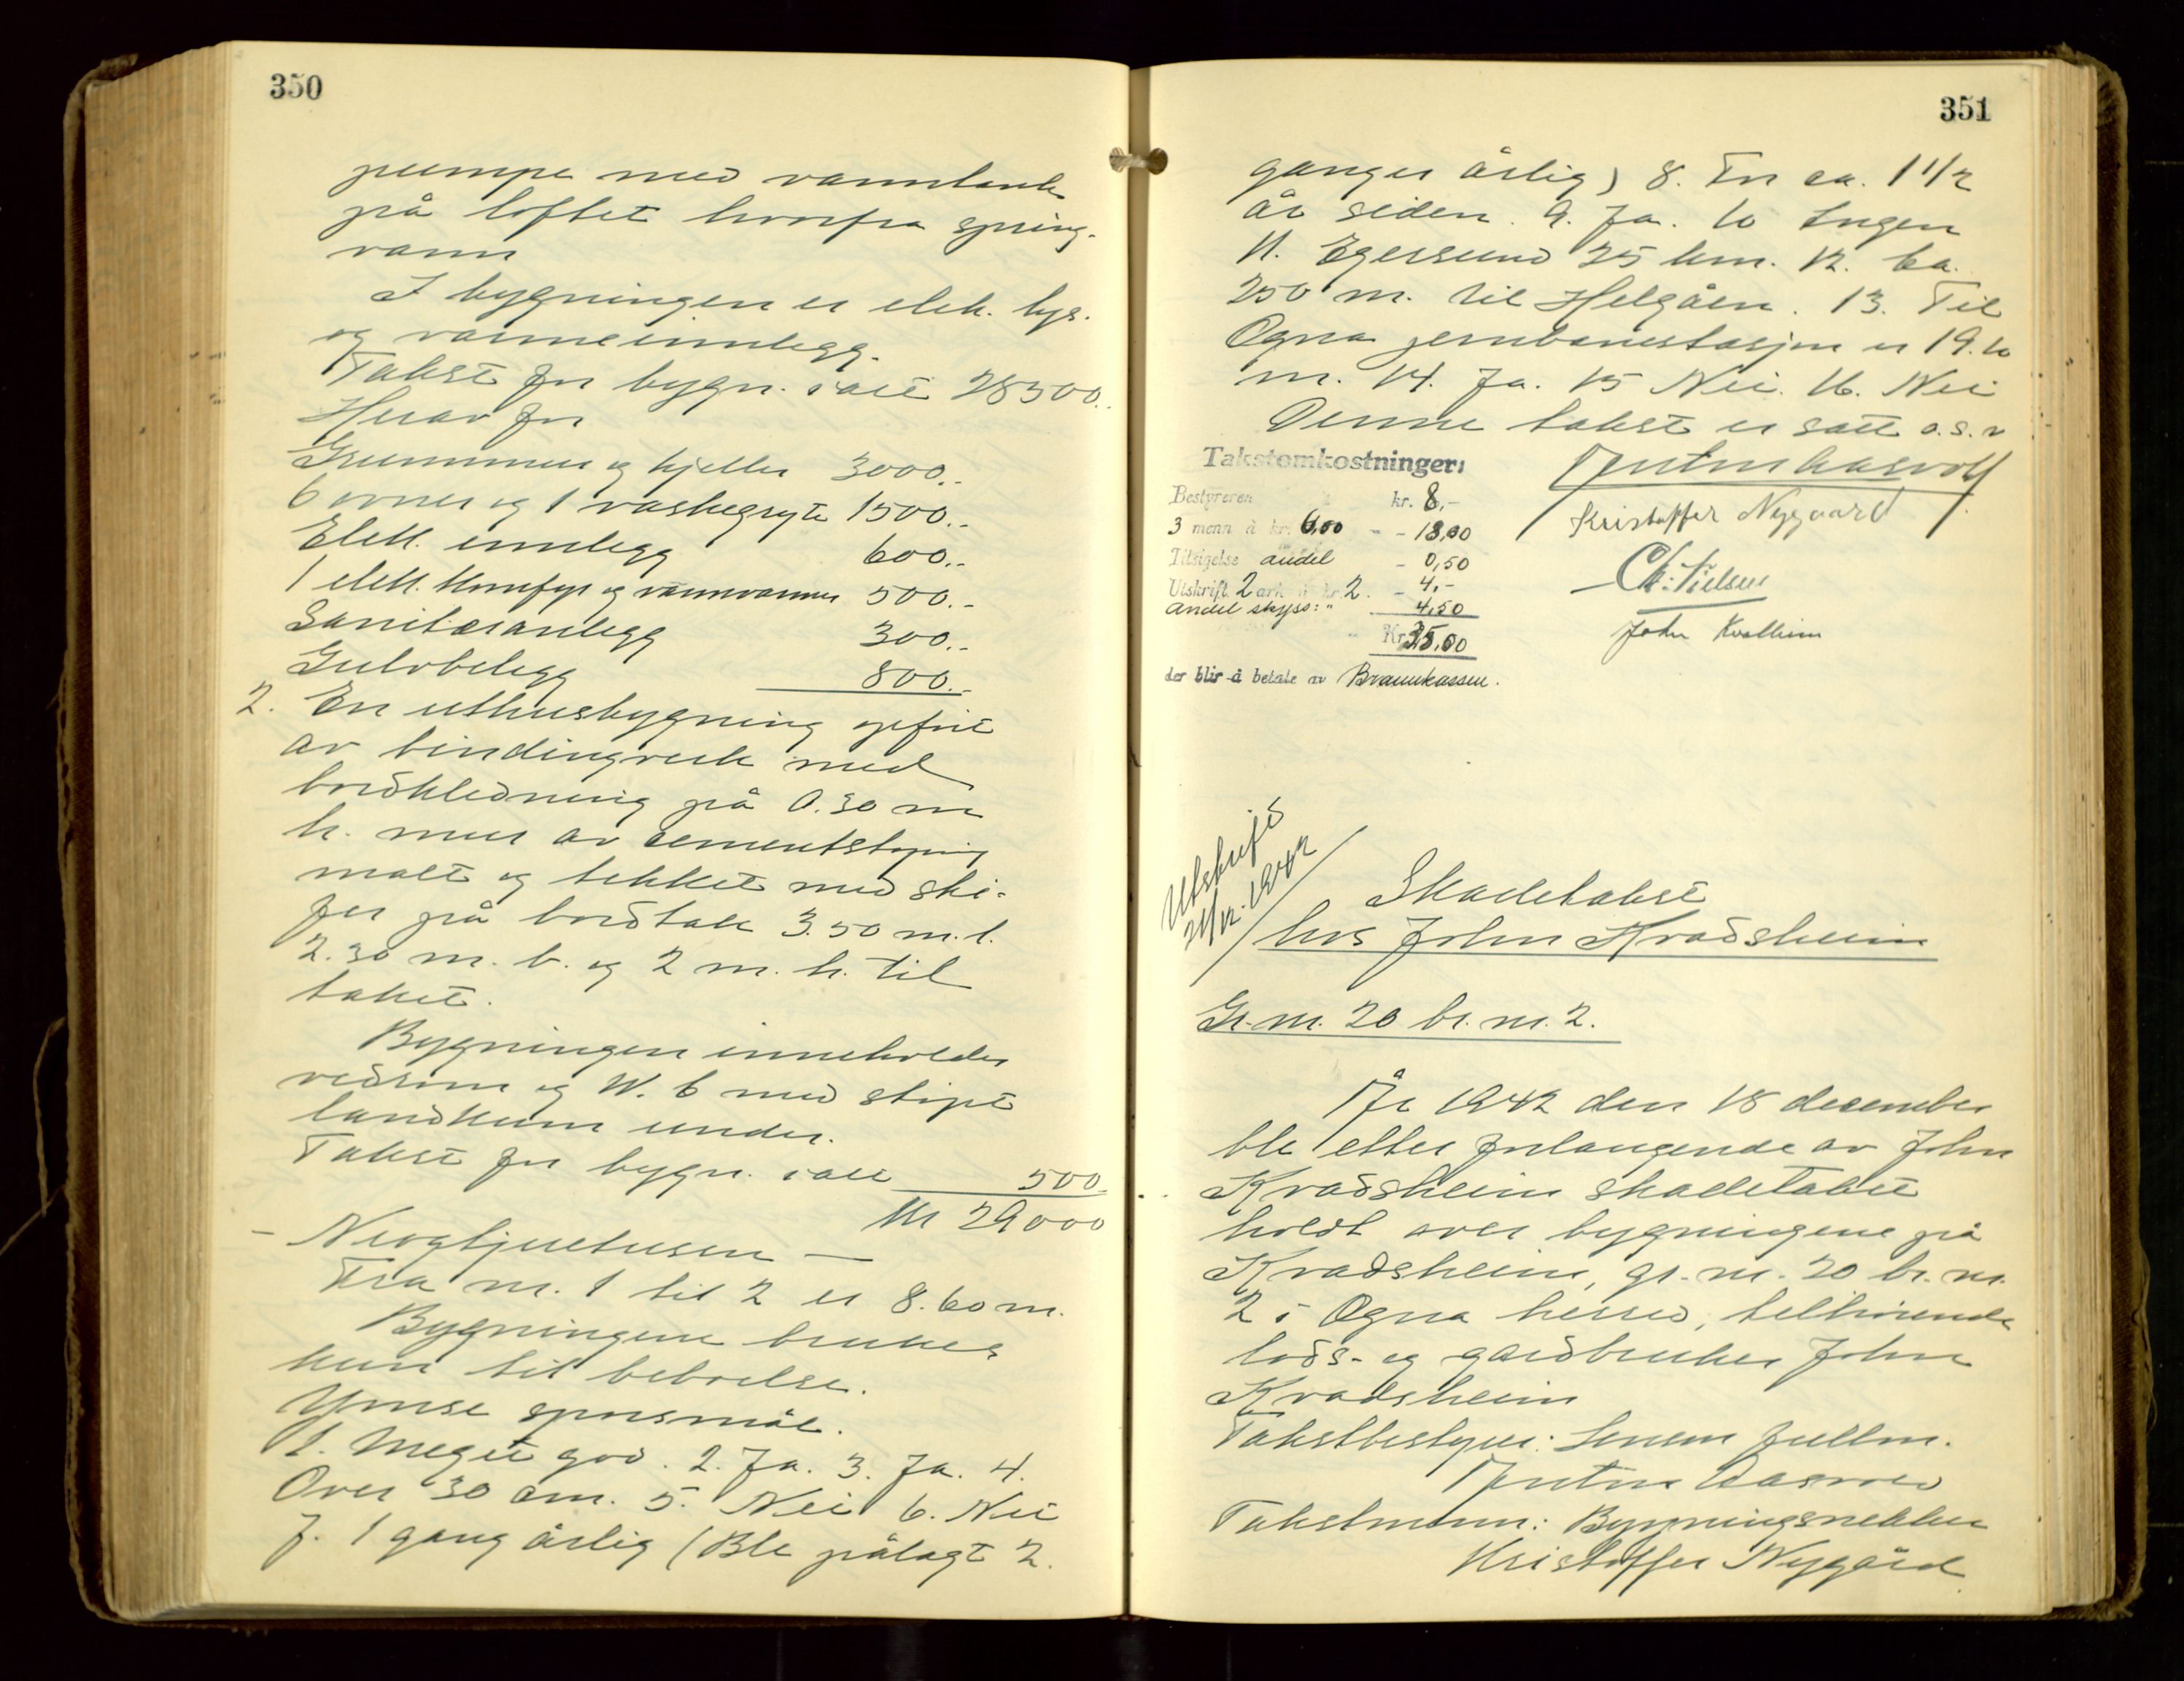 350
pumpe med vanntank
på loftet hvorfra spring-
vann
I bygningen er elek. lys-
og varmeinnlegg.
Takst for bygn. i alt 28500.-
Herav for
Grunnmur og kjeller 3000.-
6 ovner og 1 vaskegryte 1500.-
Elekt. innlegg 600.-
1 elekt. komfyr og vannvarmer 500.-
Sanitæranlegg 300.-
Gulvbelegg 800.-
2. En uthusbygning opført
av bindingverk med
bordkledning på 0.30 m
h. mur av cementstøping
malt og tekket med ski-
fer på bordtak 3.50 m. l.
2.30 m. b. og 2 m. h. til
taket.
Bygningen inneholder
vedrom og W. C med støpt
landkum under.
Takst for bygn. i alt 500
Kr 29000
- Niogtjuetusen -
Fra nr. 1 til 2 er 8.60 m.
Bygningene brukes
kun til beboelse.
Ymse spørsmål.
1. Meget god. 2. Ja. 3. Ja. 4.
Over 30 cm. 5. Nei 6. Nei
7. 1 gang årlig (Ble pålagt 2.
351
ganger årlig) 8. For ca. 1 1/2
år siden. 9. Ja. 10 Ingen
11. Egersund 25 km. 12. Ca.
250 m. til Helgåen. 13. Til
Ogna jernbanestasjon er 19.10
m. 14. Ja. 15 Nei. 16. Nei
Denne takst er satt o.s.v
Takstomkostninger:
Bestyreren kr. 8,-
3 menn à kr. 6,00 - - 18,00
Tilsigelse andel - 0,50
Utskrift 2 ark à kr. 2. - 4,-
andel skyss: " 4,50
Kr. 35,00
der blir å betale av Brannkassen.
Kristoffer Nygaard
John Kvalheim
Utskrift
21/12-1942
Skadetakst
hos John Kvadsheim
Gr. nr. 20 br. nr. 2.
År 1942 den 18 december
ble etter forlangende av John
Kvadsheim skadetakst
holdt over bygningene på
Kvadsheim, gr. nr. 20 br. nr.
2 i Ogna herred, tilhørende
lods- og gardbruker John
Kvadsheim
Takstbestyrer: Lensm fullm.
Takstmenn: Bygningsnekker
Kristoffer Nygård